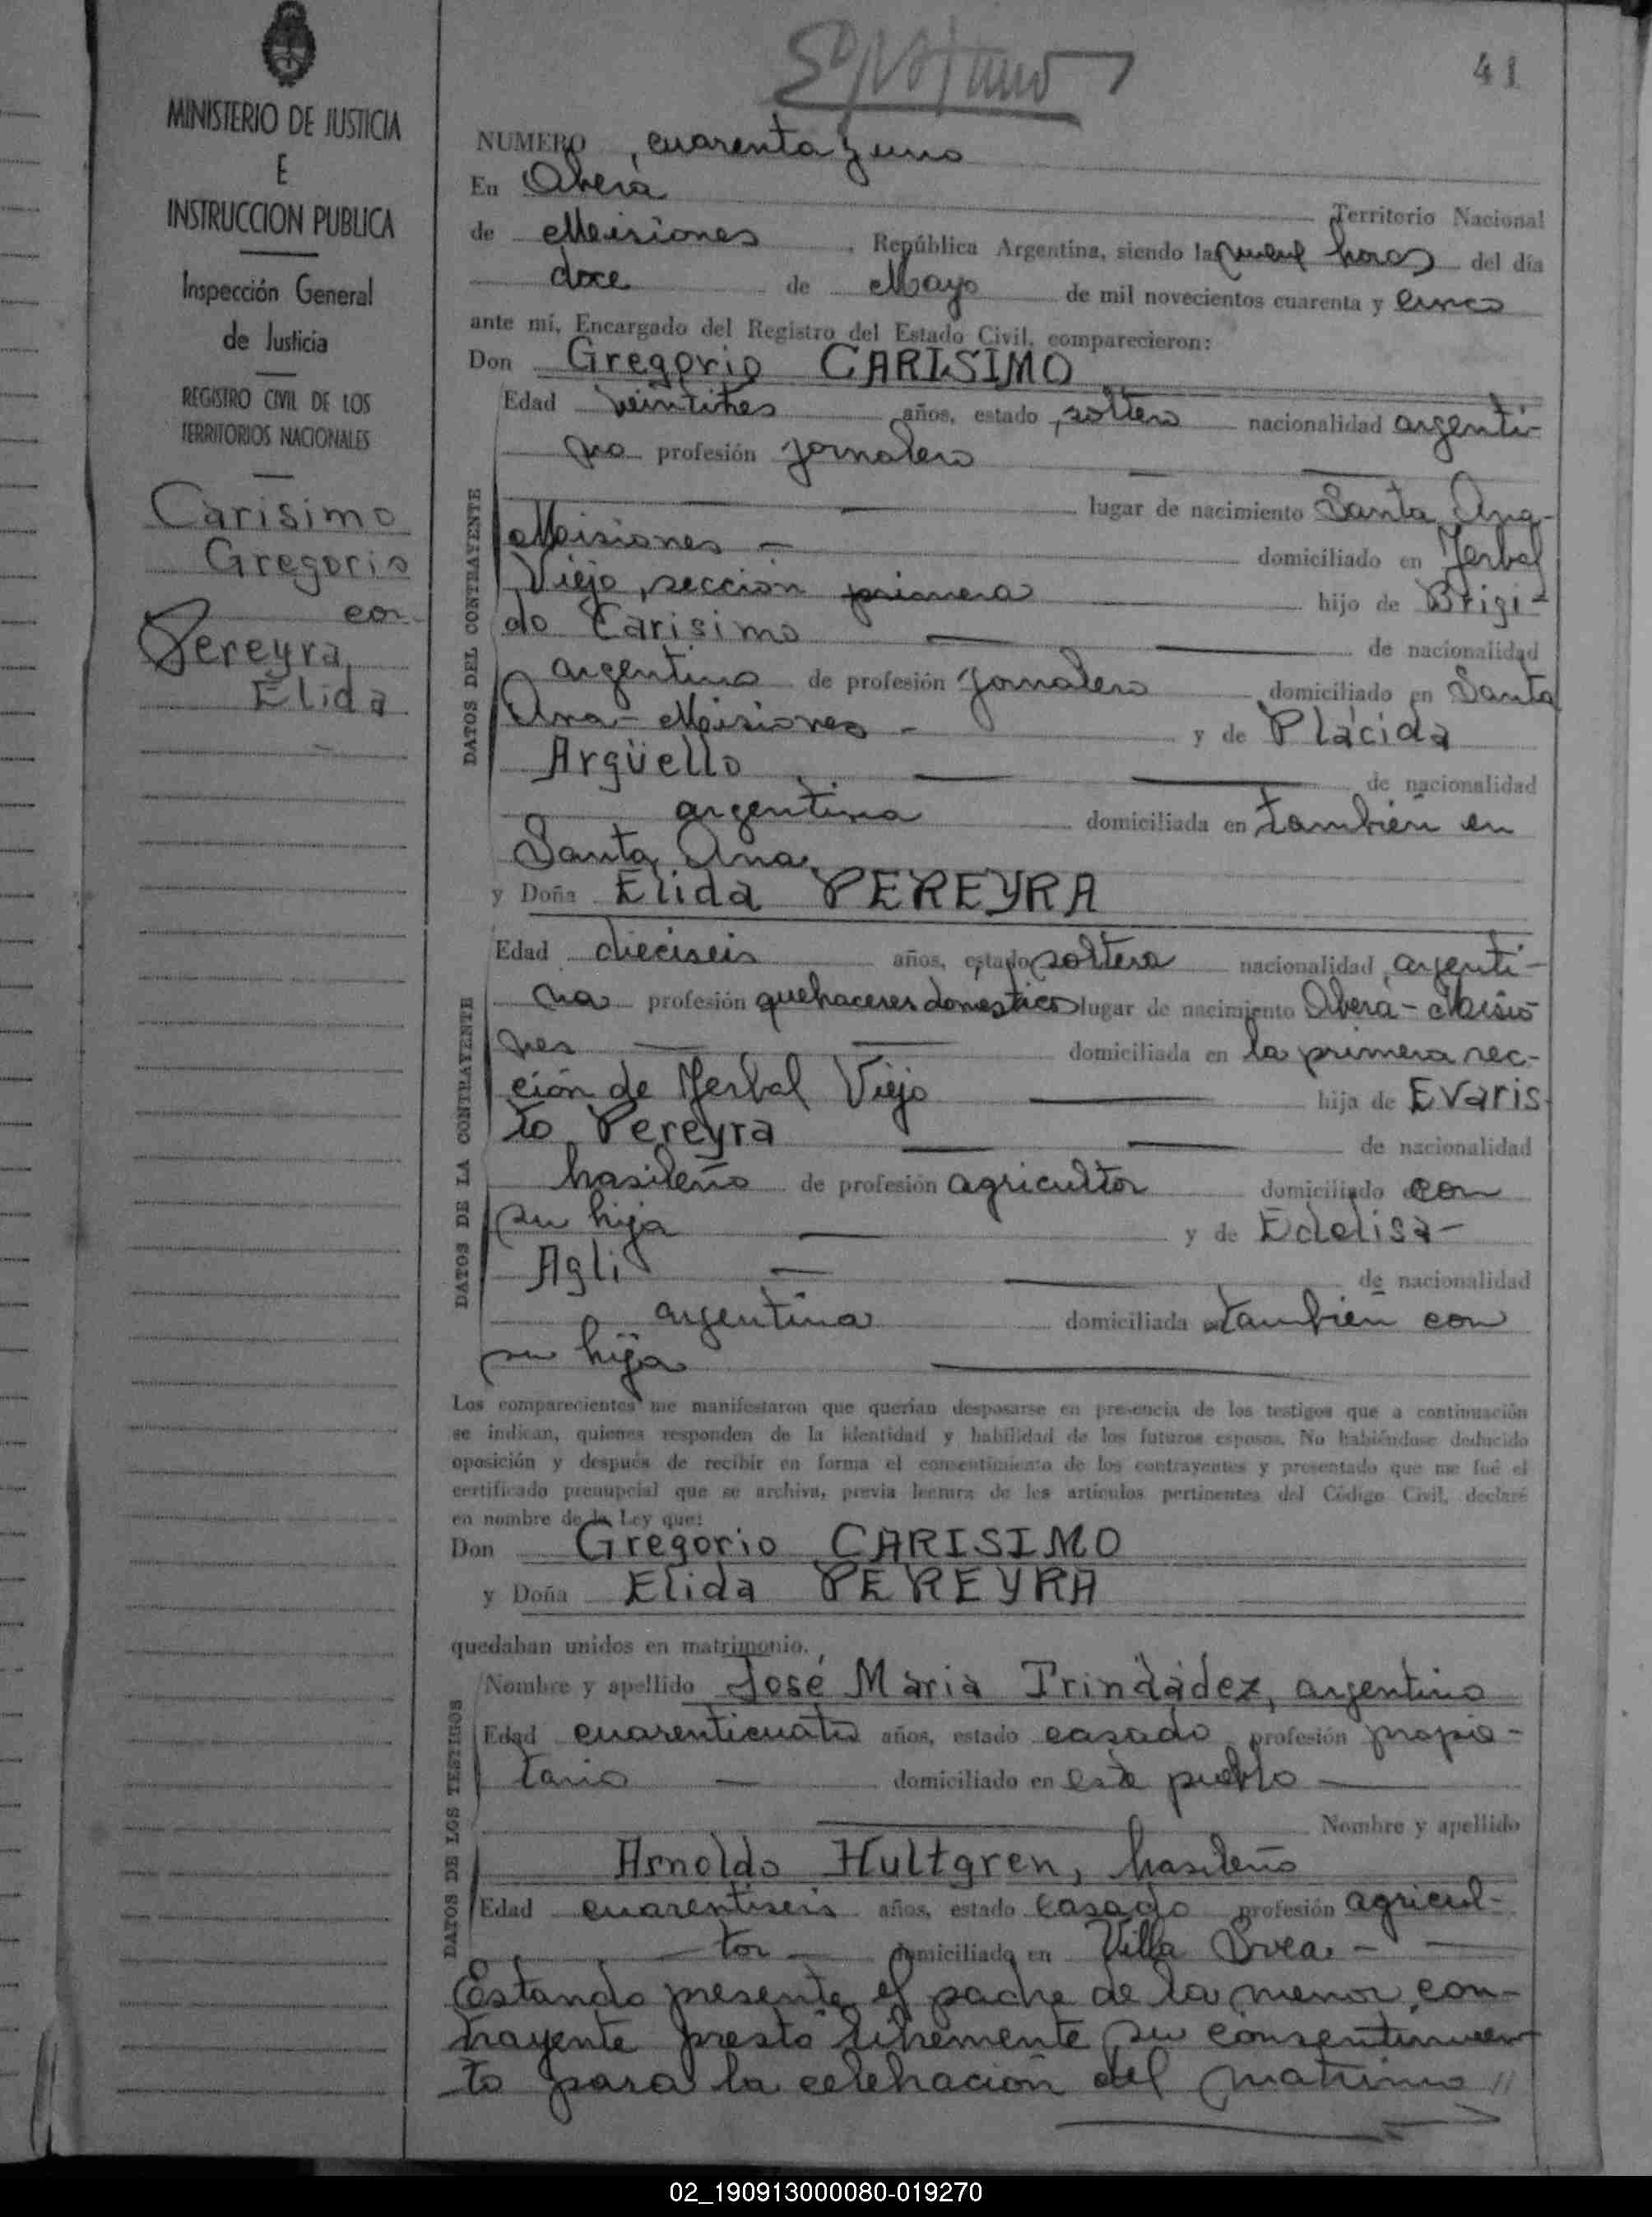 41
MINISTERIO DE JUSTICIA
E
INSTRUCCION PUBLICA
Inspección General
de Justicia
REGISTRO CIVIL DE LOS
TERRITORIOS NACIONALES
Carisimo
Gregorio
con
Pereyra
Elida
NUMERO cuarenta y uno
En Oberá
Territorio Nacional
de Misiones, República Argentina, siendo las nueve horas del día
doce de Mayo de mil novecientos cuarenta y cinco
ante mí, Encargado del Registro del Estado Civil, comparecieron:
Don Gregorio CARISIMO
DATOS DEL CONTRAYENTE
Edad veintitres años, estado soltero nacionalidad argenti-
no profesión jornalero
lugar de nacimiento Santa Ana-
Misiones - domiciliado en Yerbal
Viejo, sección primera hijo de Brigi-
do Carisimo de nacionalidad
argentino de profesión jornalero domiciliado en Santa
Ana - Misiones - y de Plácida
Argüello de nacionalidad
argentina domiciliada en también en
Santa Ana
y Doña Elida PEREYRA
DATOS DE LA CONTRAYENTE
Edad dieciseis años, estado soltera nacionalidad argenti-
na profesión quehaceres domésticos lugar de nacimiento Oberá - Misio-
nes domiciliada en la primera sec-
ción de Yerbal Viejo hija de Evaris-
to Pereyra de nacionalidad
brasileño de profesión agricultor domiciliado con
su hija y de Edelisa -
Agli de nacionalidad
argentina domiciliada también con
su hija
Los comparecientes me manifestaron que querían desposarse en presencia de los testigos que a continuación
se indican, quienes responden de la identidad y habilidad de los futuros esposos. No habiéndose deducido
oposición y después de recibir en forma el consentimiento de los contrayentes y presentado que me fué el
certificado prenupcial que se archiva, previa lectura de los artículos pertinentes del Código Civil, declaré
en nombre de la Ley que:
Don Gregorio CARISIMO
y Doña Elida PEREYRA
quedaban unidos en matrimonio.
DATOS DE LOS TESTIGOS
Nombre y apellido José Maria Trindádez, argentino
Edad cuarenticuatro años, estado casado profesión propie-
tario domiciliado en este pueblo
Nombre y apellido
Arnoldo Hultgren, brasileño
Edad cuarentiseis años, estado casado profesión agricul-
tor domiciliado en Villa Svea -
Estando presente el padre de la menor con-
trayente prestó libremente su consentimien-
to para la celebración del matrimo //
02_190913000080-019270